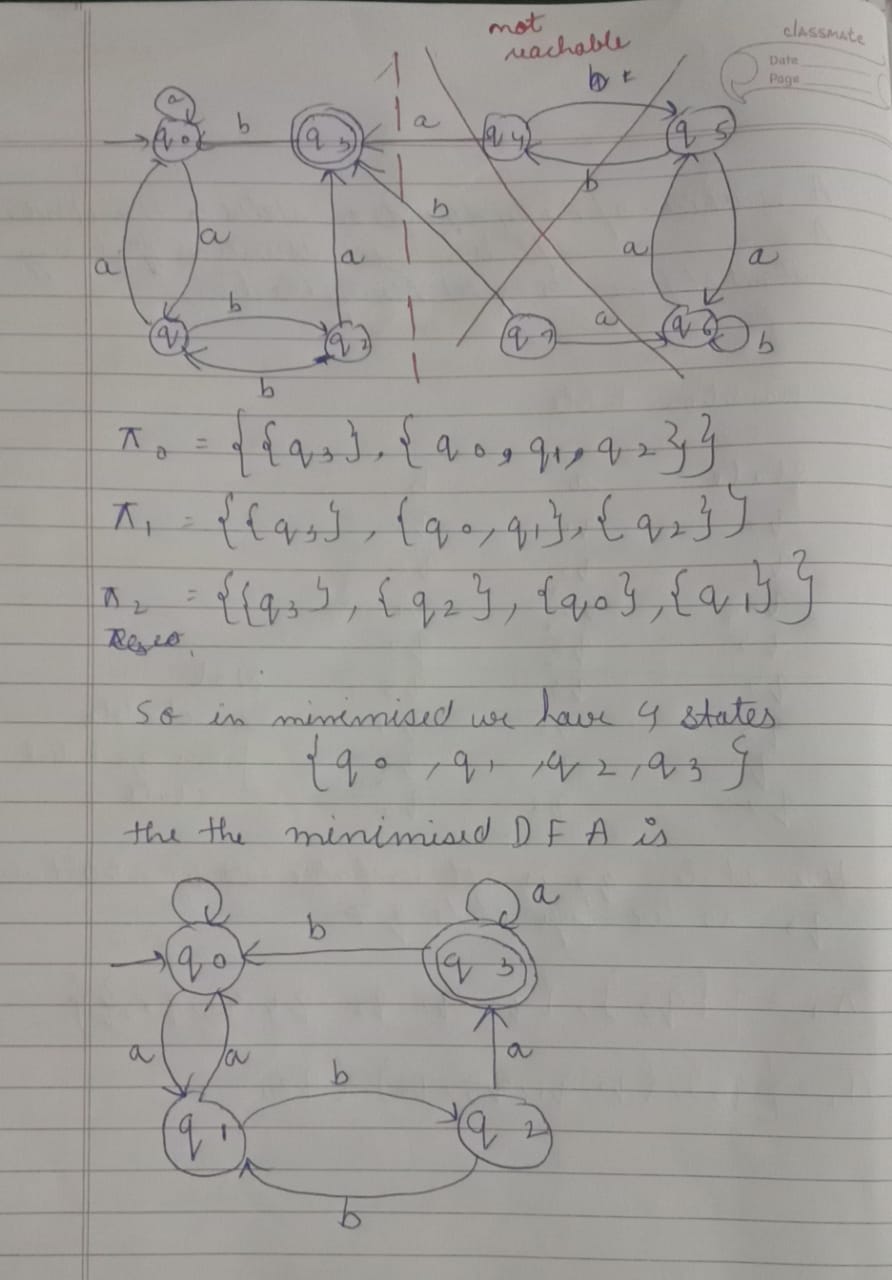 not
reachable
classmate
Date
Page
a
q0
b
q3
a
q4
b
q5
b
b
a
a
a
a
a
b
q
q2
b
q7
a
q6
b
π0 = {{q3}, {q0, q1, q2}}
π1 = {{q3}, {q0, q1}, {q2}}
π2 = {{q3}, {q2}, {q0}, {q1}}
so in minimised we have 4 states
{q0, q1, q2, q3}
the the minimised DFA is
a
b
q0
q3
a
a
a
b
q1
q2
b